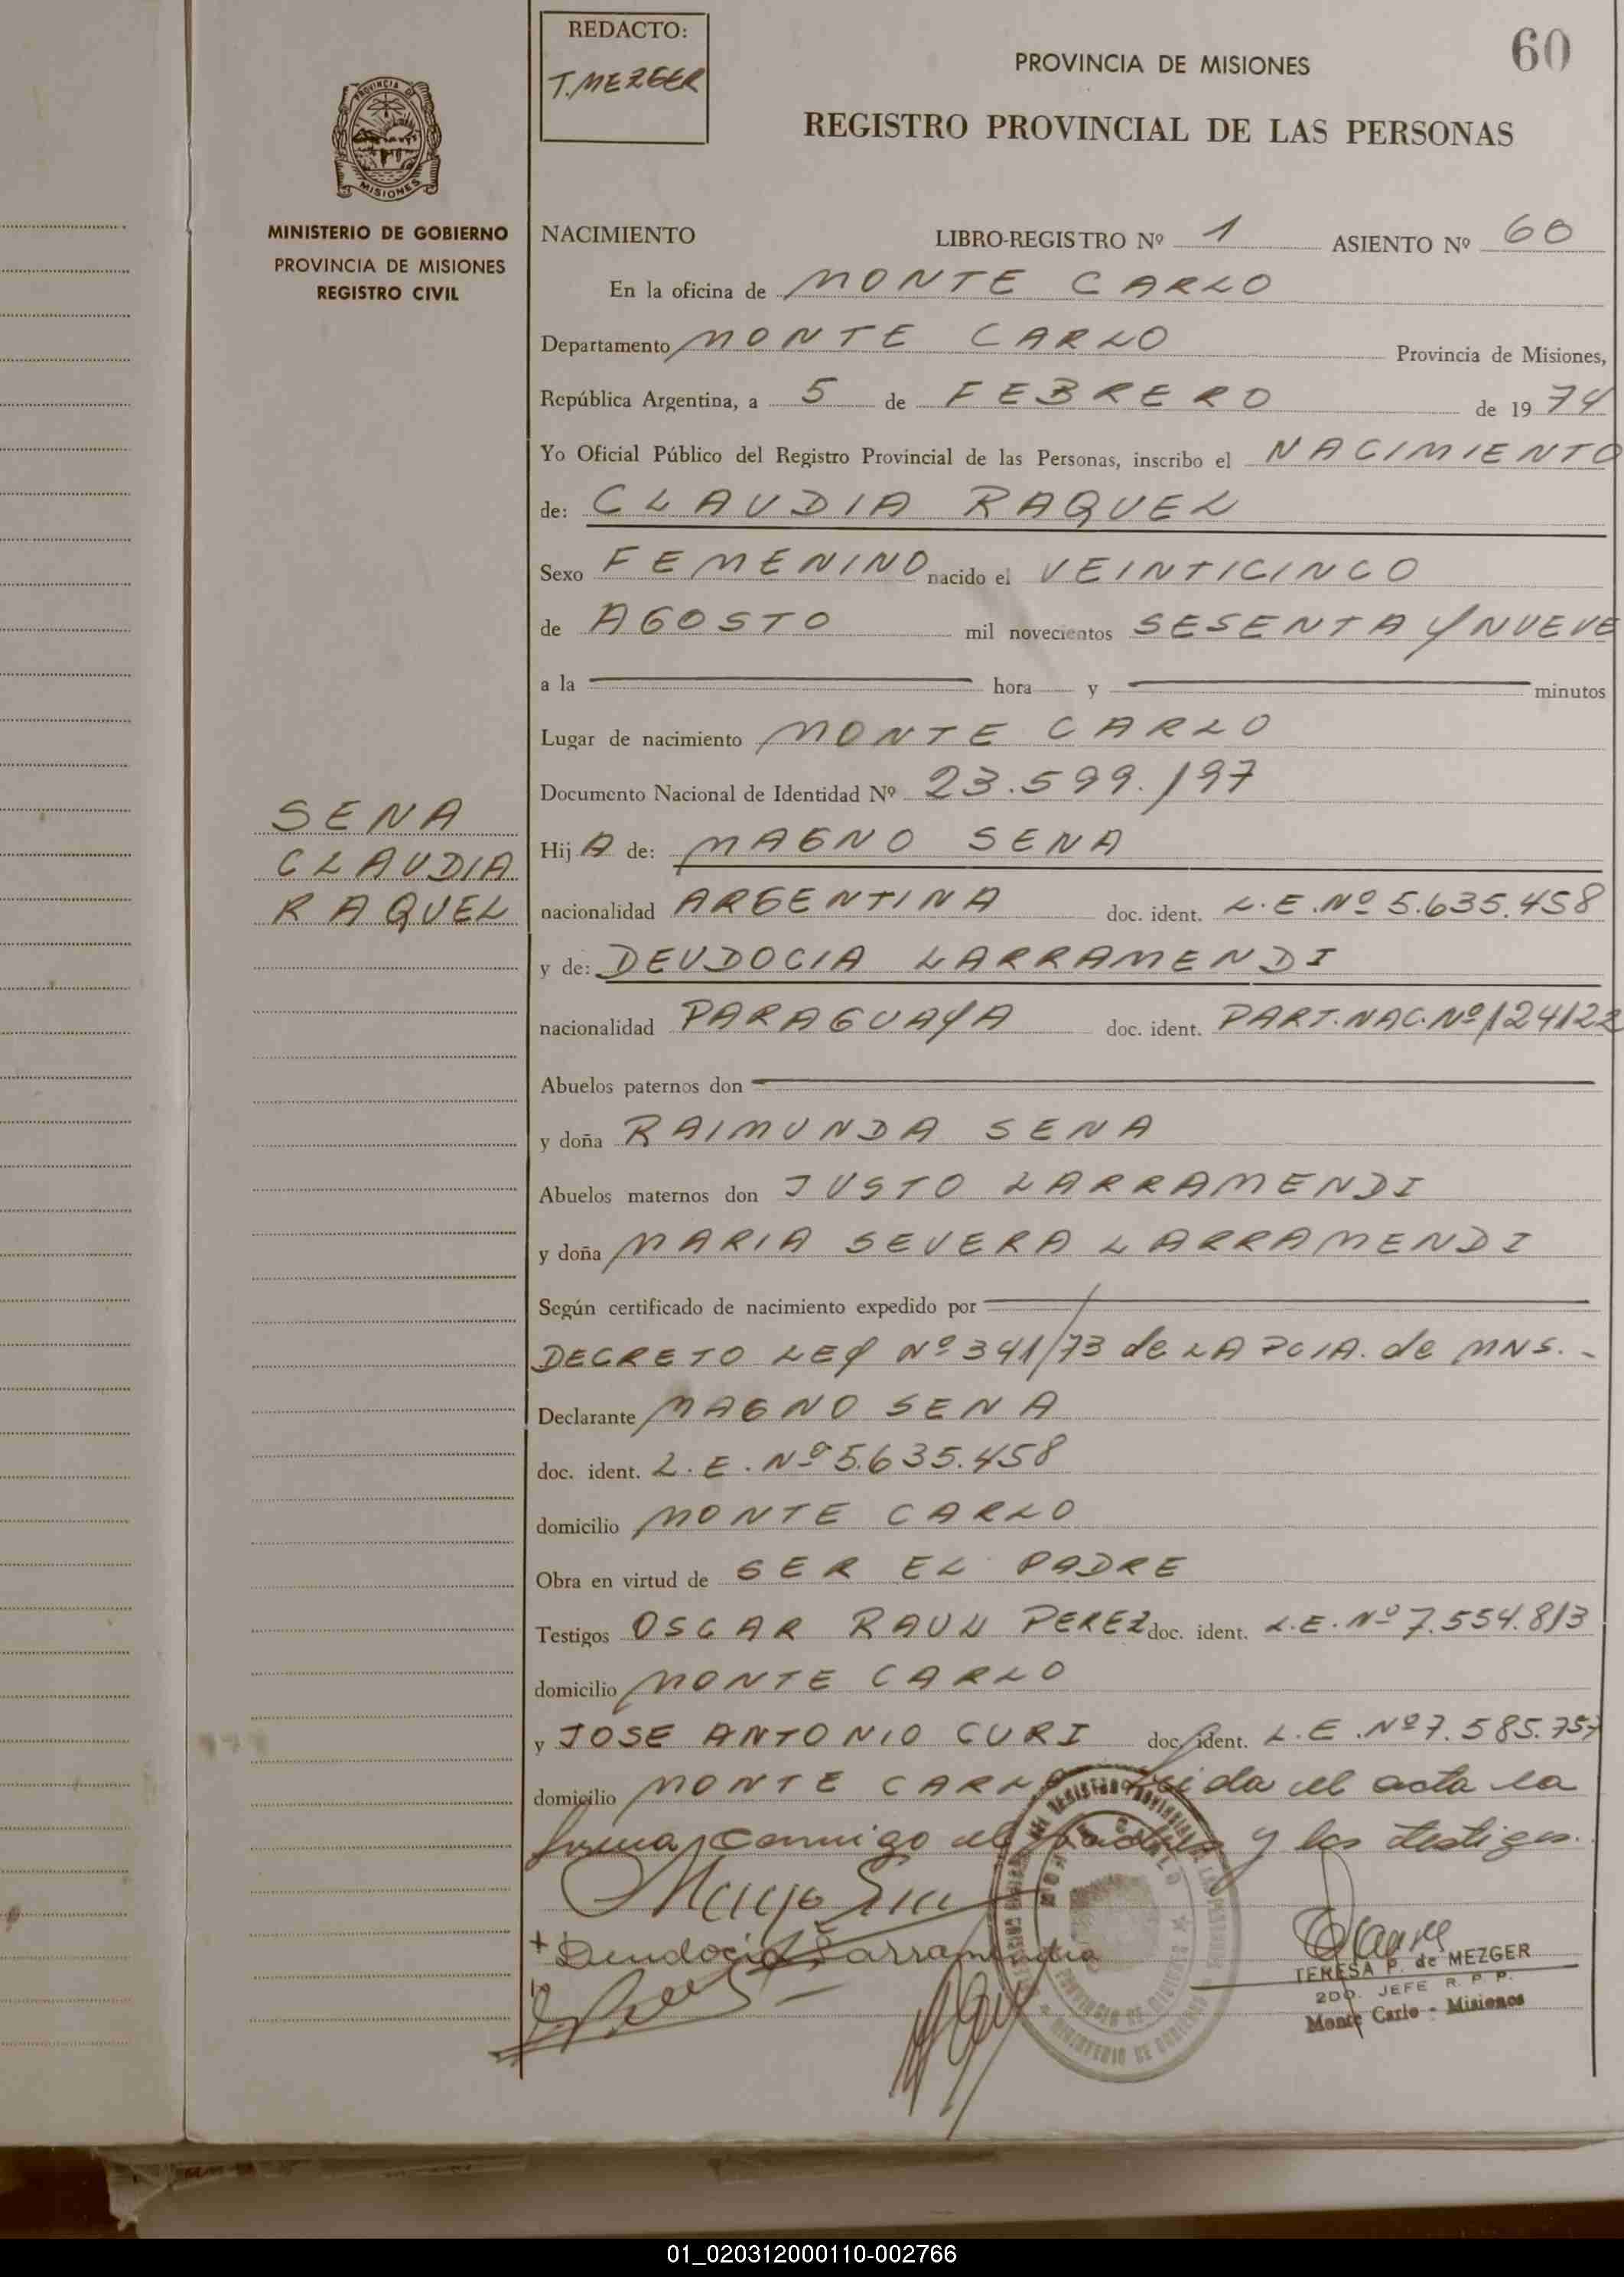 REDACTO:
T. MEZGER
60
PROVINCIA DE MISIONES
REGISTRO PROVINCIAL DE LAS PERSONAS
PROVINCIA DE
MISIONES
MINISTERIO DE GOBIERNO
PROVINCIA DE MISIONES
REGISTRO CIVIL
NACIMIENTO LIBRO-REGISTRO Nº 1 ASIENTO Nº 60
En la oficina de MONTE CARLO
Departamento MONTE CARLO Provincia de Misiones,
República Argentina, a 5 de FEBRERO de 1974
Yo Oficial Público del Registro Provincial de las Personas, inscribo el NACIMIENTO
de: CLAUDIA RAQUEL
Sexo FEMENINO nacido el VEINTICINCO
de AGOSTO mil novecientos SESENTA Y NUEVE
a la hora y minutos
Lugar de nacimiento MONTE CARLO
Documento Nacional de Identidad Nº 23.599.197
SENA
CLAUDIA
RAQUEL
Hij A de: MAGNO SENA
nacionalidad ARGENTINA doc. ident. L.E.Nº 5.635.458
y de: DEUDOCIA LARRAMENDI
nacionalidad PARAGUAYA doc. ident. PART.NAC.Nº 124122
Abuelos paternos don
y doña RAIMUNDA SENA
Abuelos maternos don JUSTO LARRAMENDI
y doña MARIA SEVERA LARRAMENDI
Según certificado de nacimiento expedido por
DECRETO LEY Nº 341/73 de LA PCIA. de MNS. -
Declarante MAGNO SENA
doc. ident. L.E. Nº 5.635.458
domicilio MONTE CARLO
Obra en virtud de SER EL PADRE
Testigos OSCAR RAUL PEREZ doc. ident. L.E. Nº 7.554.813
domicilio MONTE CARLO
y JOSE ANTONIO CURI doc. ident. L.E. Nº 7.585.757
domicilio MONTE CARLO Leida el acta la
firma conmigo el padre y los testigos.
Magno Sena
+ Deudocia Larramendia
TERESA P. de MEZGER
2DO. JEFE R. P. P.
Monte Carlo - Misiones
01_020312000110-002766